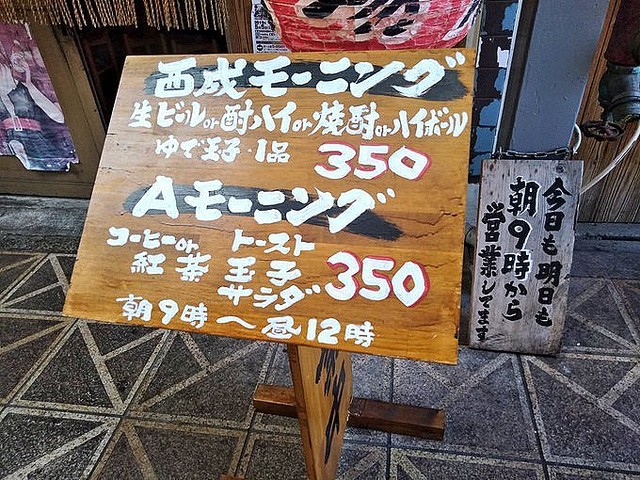 西成モーニング
生ビールor酎ハイor焼酎orハイボール
ゆで玉子・1品 350
Aモーニング
コーヒーor 紅茶
トースト
玉子
サラダ
350
朝9時〜昼12時
今日も明日も
朝9時から
営業してます